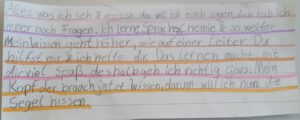 Alles was ich seh & versteh das will ich euch sagen. Doch hab ich
immer noch Fragen. Ich lerne Sprache, Chemie & so weiter
Mein Wissen geht höher, wie auf einer Leiter. Du
hilfst mir & ich helfe dir. Das Lernen macht mit
dir viel Spaß, deshalb geb ich richtig Gas. Mein
Kopf der brauch jetzt Wissen, darum will ich nun die
Segel hissen